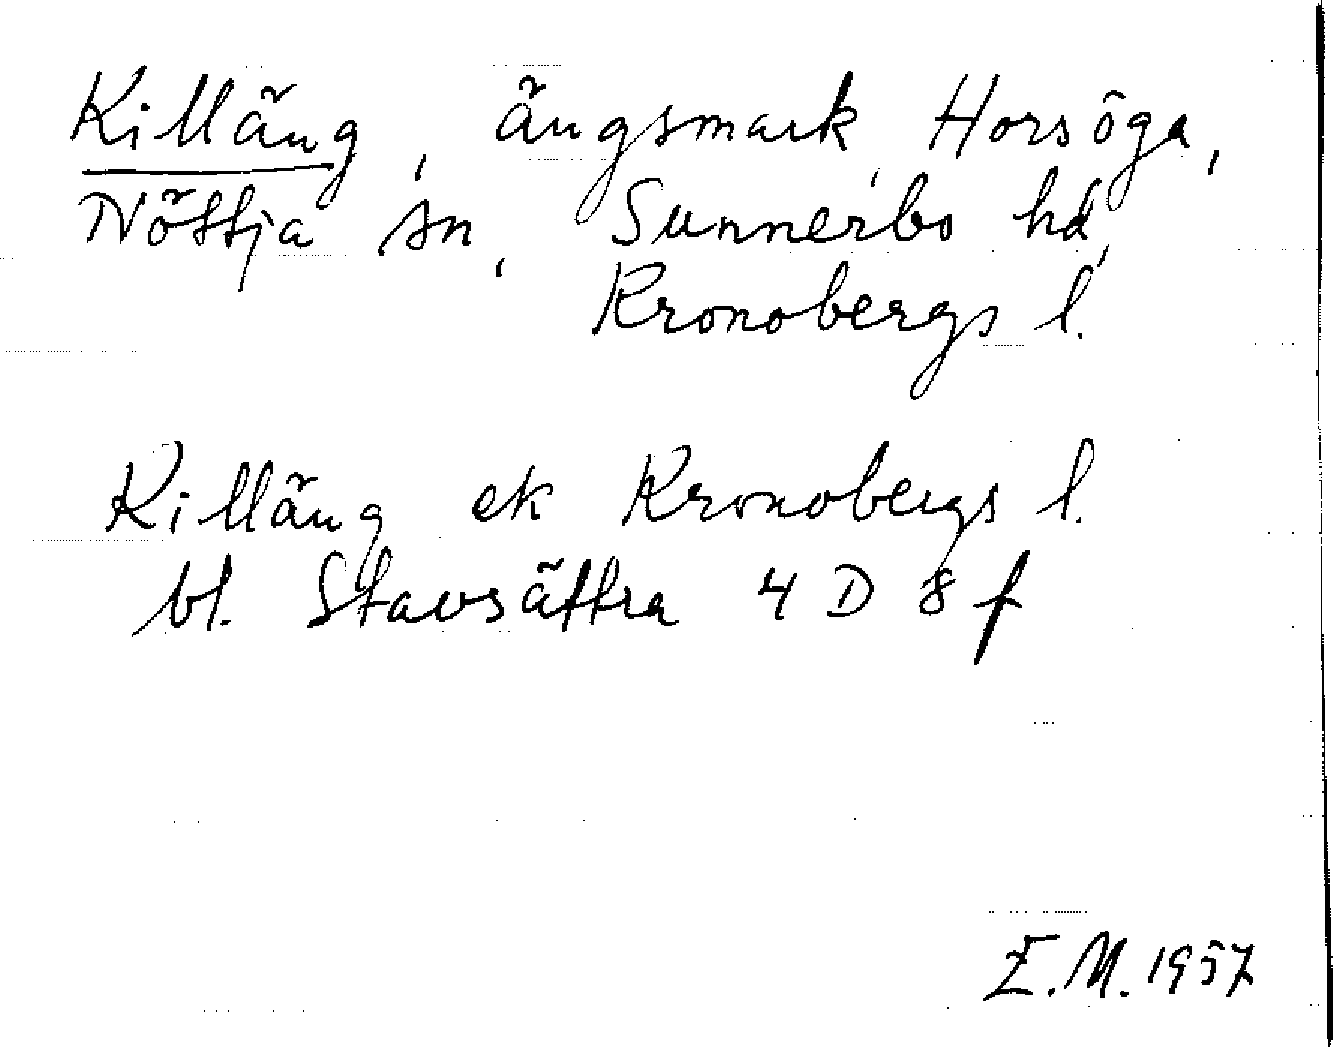 Killäng, ängsmark, Horsöga,
Nöttja sn, Sunnerbo hd,
Kronobergs l.
Killäng ek Kronobergs l.
bl. Stavsättra 4 D 8 f
E.M. 1957